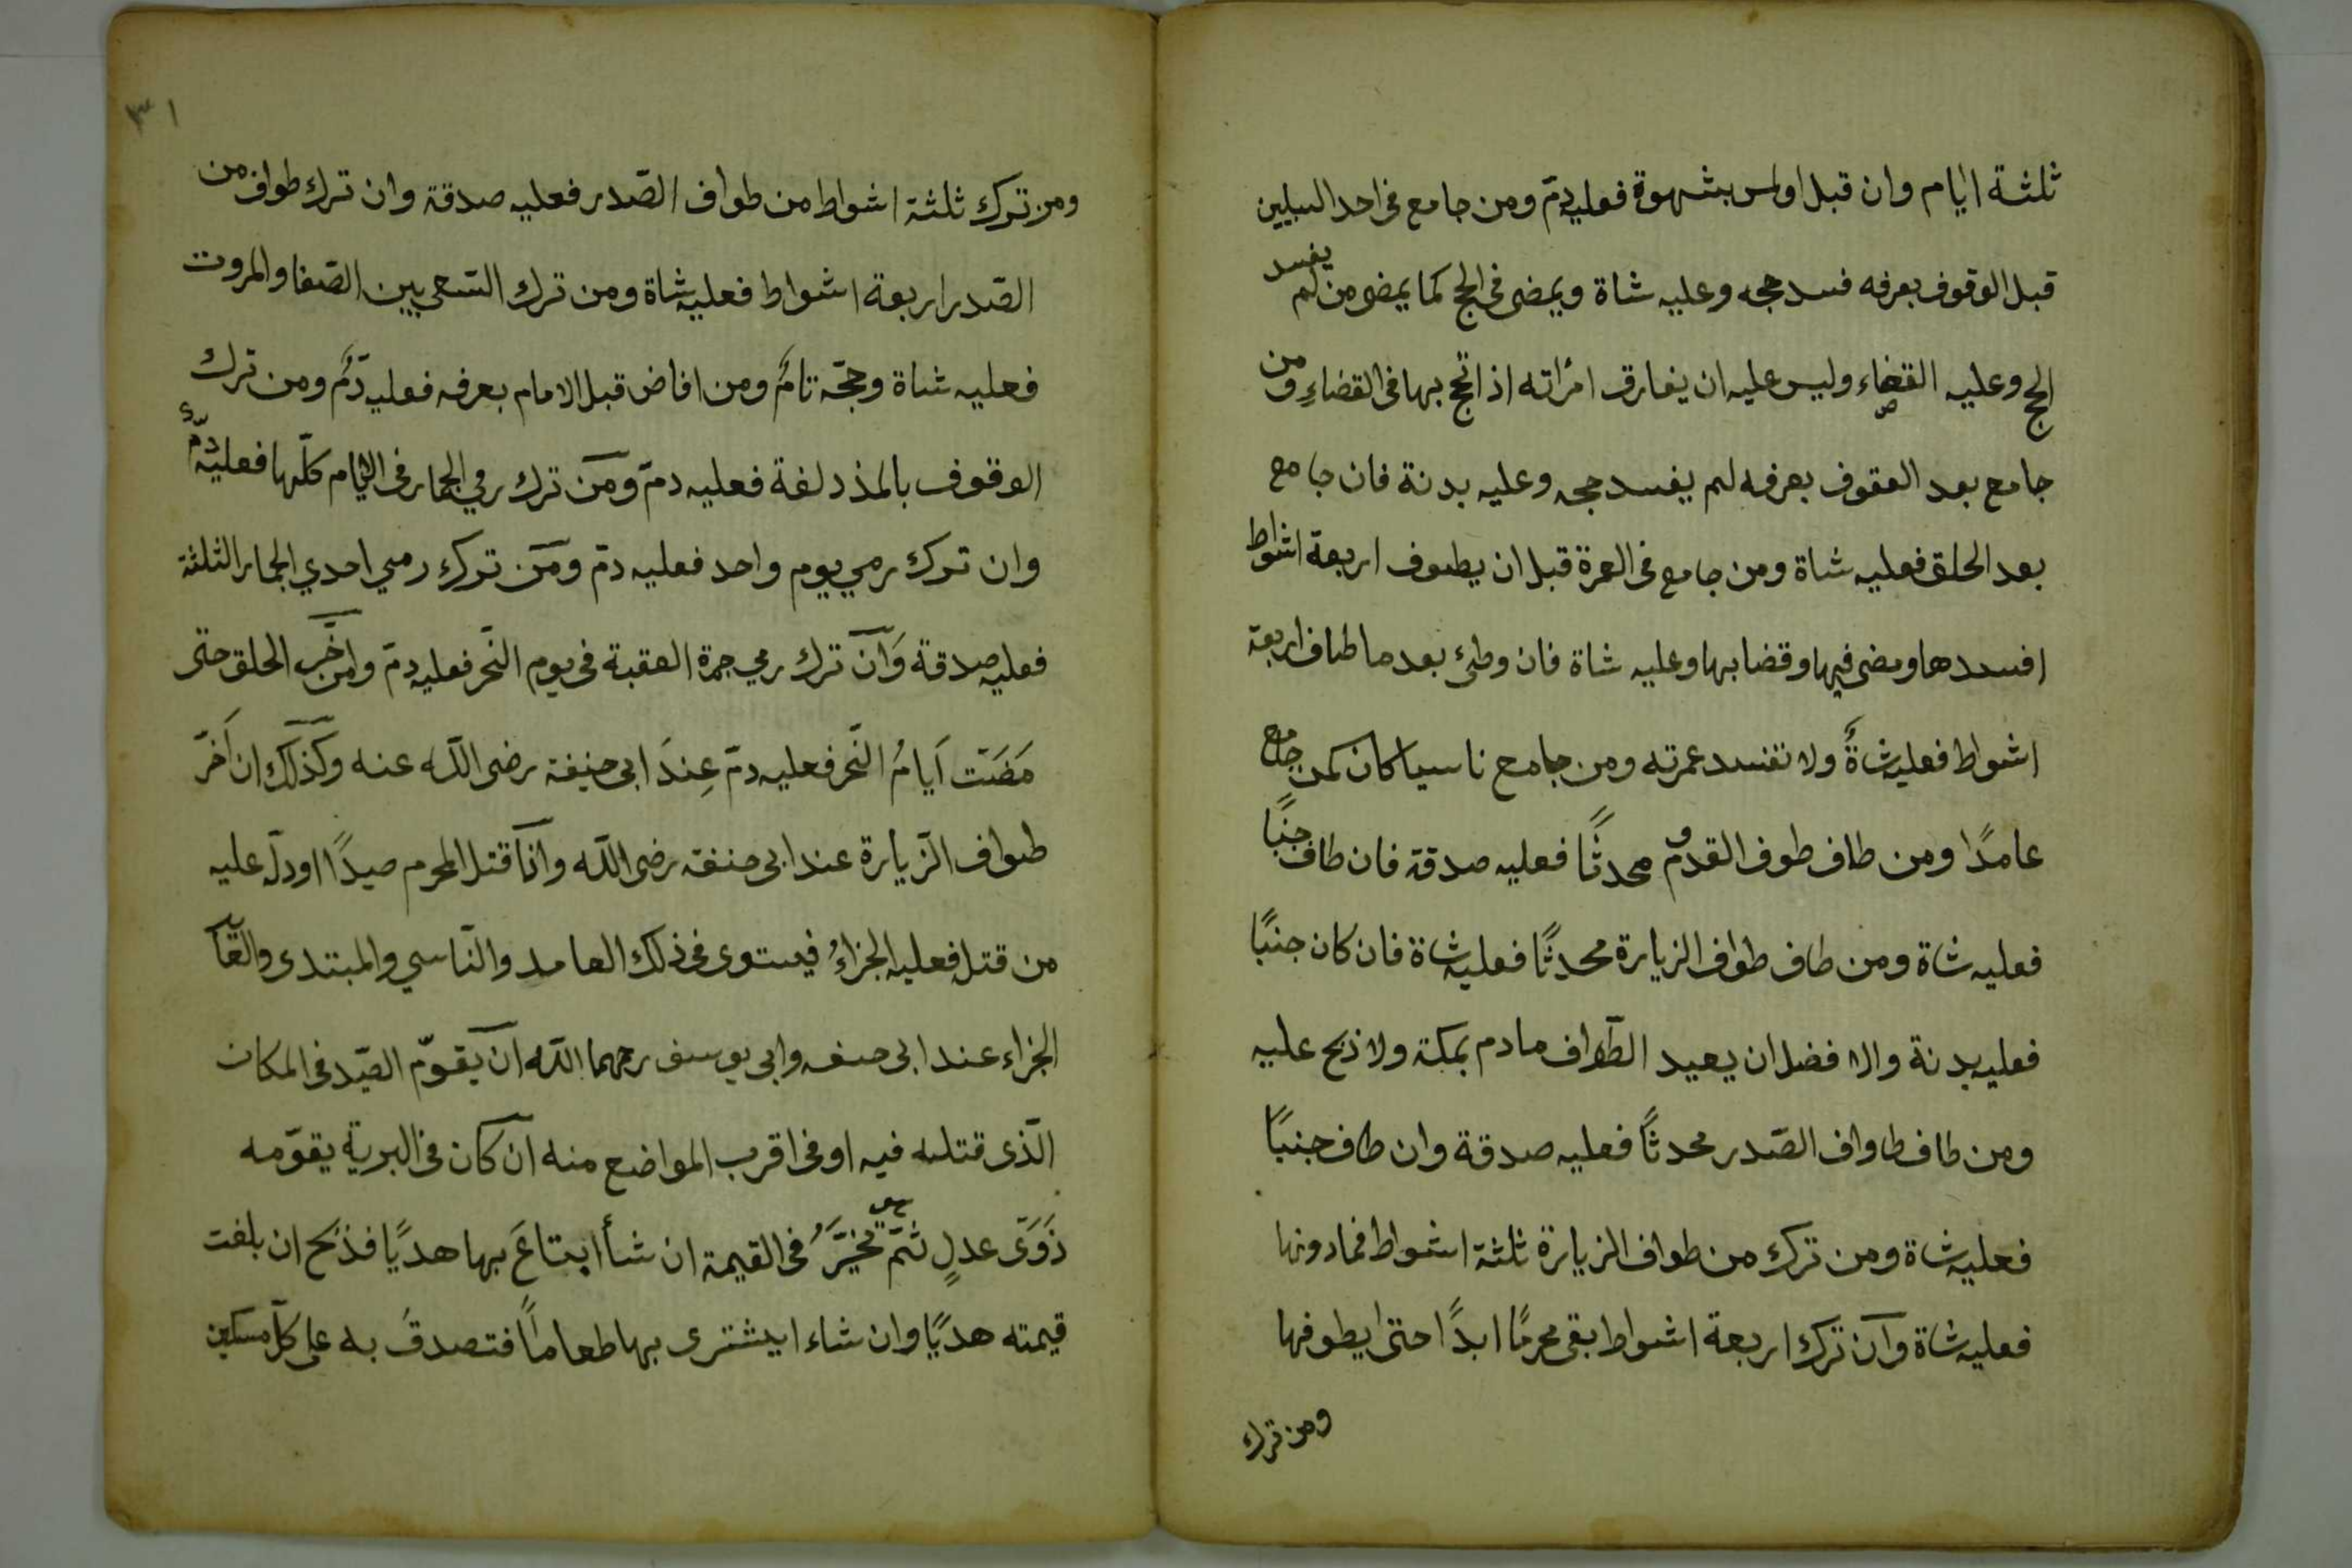 ثلثة ايام وان قبل اولمس بشهوة فعليه دمّ ومن جامع فى احد السبيلين
قبل الوقوف بعرفه فسد حجه وعليه شاة ويمضى فى الحج كما يمضى من لم يفسد
الحج وعليه القضاء وليس عليه ان يفارق امرٔاته اذا حج بها فى القضاءِ ومن
جامع بعد العقوف بعرفه لم يفسد حجه وعليه بدنة فان جامع
بعد الحلق فعليه شاة ومن جامع فى العمرة قبل ان يطوف اربعة اشواط
افسدها ومضى فيها وقضابها وعليه شاة فان وطئ بعد ما طاف اربعة
اشواط فعليه شاةٌ ولا تفسد عمرته ومن جامع ناسيا كان كمن جامع
عامدًا ومن طاف طوف القدوم محدثًا فعليه صدقة فان طاف جنبًا
فعليه شاة ومن طاف طواف الزيارة محدثًا فعليه شاة فان كان جنبًا
فعليه بدنة والافضل ان يعيد الطّواف مادم بمكة ولا ذبح عليه
ومن طاف طاواف الصّدر محدثًا فعليه صدقة وان طاف جنبًا
فعليه شاة ومن ترك من طواف الزيارة ثلثة اشواط فمادونها
فعليه شاة وان ترك اربعة اشواط بقى محرمًا ابدًا حتى ايطوفها
ومن ترك
٣١
ومن ترك ثلثة اشواط من طواف الصّدر فعليه صدقة وان ترك طواف من
الصّدر اربعة اشواط فعليه شاة ومن ترك السّعى بين الصّفا والمروت
فعليه شاة وحجّه تامٌ ومن افاض قبل الامام بعرفه فعليه دمٌ ومن ترك
الوقوف بالمذدلفة فعليه دمّ ومن ترك رمي الجمار فى الايام كلّها فعليه دمٌ
وان ترك رمي يوم واحد فعليه دمّ ومن ترك رمي احدي الجمار الثلثة
فعليه صدقة وَان ترك رمي جمرة العقبة فى يوم النّحر فعليه دمّ ومن اخّر الحلق حتى
مَضَت اَيامُ النّحر فعليه دمّ عِندَ ابى حنيفة رضى اللّه عنه وكذلك ان اَخّر
طواف الزّيارة عند ابى حنفة رضى اللّه واذا قتل المحرم صيدًا اودلّ عليه
من قتله فعليه الجزاءُ فيستوى فى ذلك العامد والنّاسي والمبتدى والعّا
الجزاء عند ابى حنيفه وابى يوسف رحمهما اللّه ان يقوّم الصّيد فى المكان
الّذى قتله فيه او فى اقرب المواضع منه ان كان فى البرية يقوّمه
ذَوَى عدلٍ ثمّ هو مخيّرٌ فى القيمة ان شأ ابتاعَ بها هديًا فذبح ان بلغت
قيمته هديًا وان شاء ايشترى بها طعامًا فتصدقَ به على كلّ مسكين